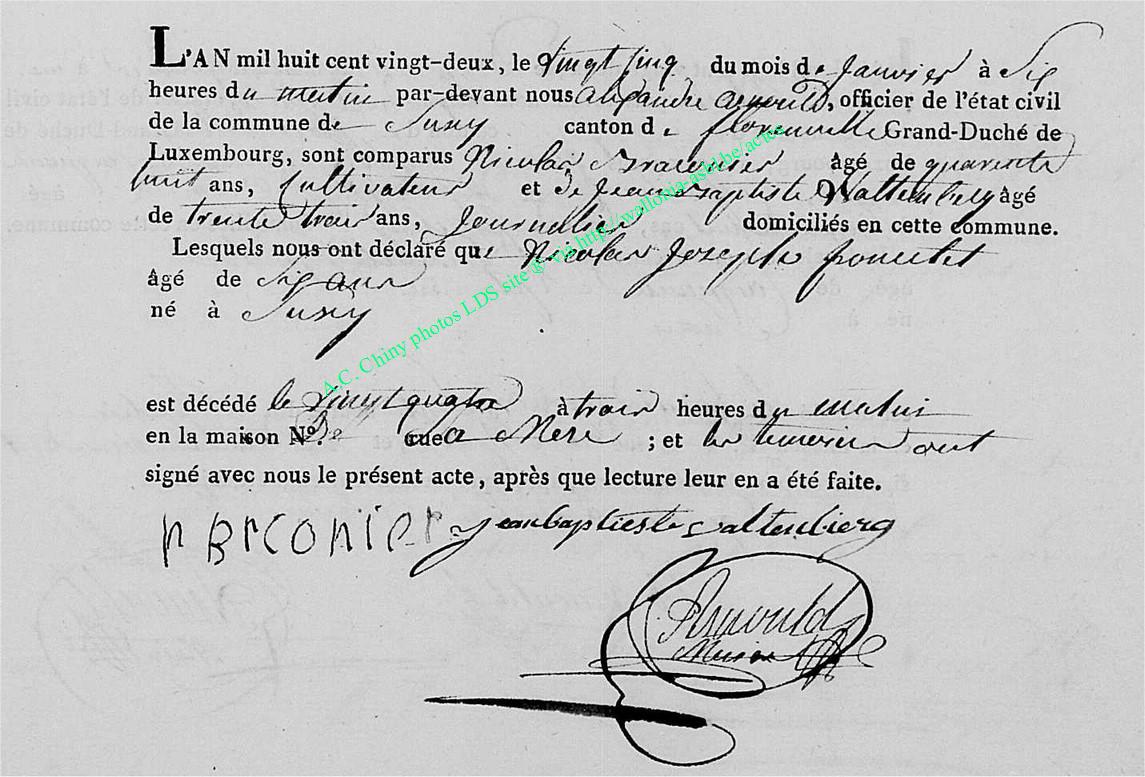 L'AN mil huit cent vingt-deux, le vingt cinq du mois de Janvier à Six
heures du matin par-devant nous alexandre arnould, officier de l'état civil
de la commune de Suxy canton de florenville Grand-Duché de
Luxembourg, sont comparus Nicolas Braconier âgé de quarente
huit ans, Cultivateur et de Jean Baptiste Waltenberg âgé
de trente trois ans, Journallier domiciliés en cette commune.
Lesquels nous ont déclaré que Nicolas Joseph
âgé de Six ans
né à Suxy
est décédé le vingt quatre à trois heures du matin
en la maison No. de rue ; et les temoins ont
signé avec nous le présent acte, après que lecture leur en a été faite.
n Brconier jean baptieste waltenberg
Arnould
A.C. Chiny photos LDS site @ via http://wallonia-asbl.be/actes